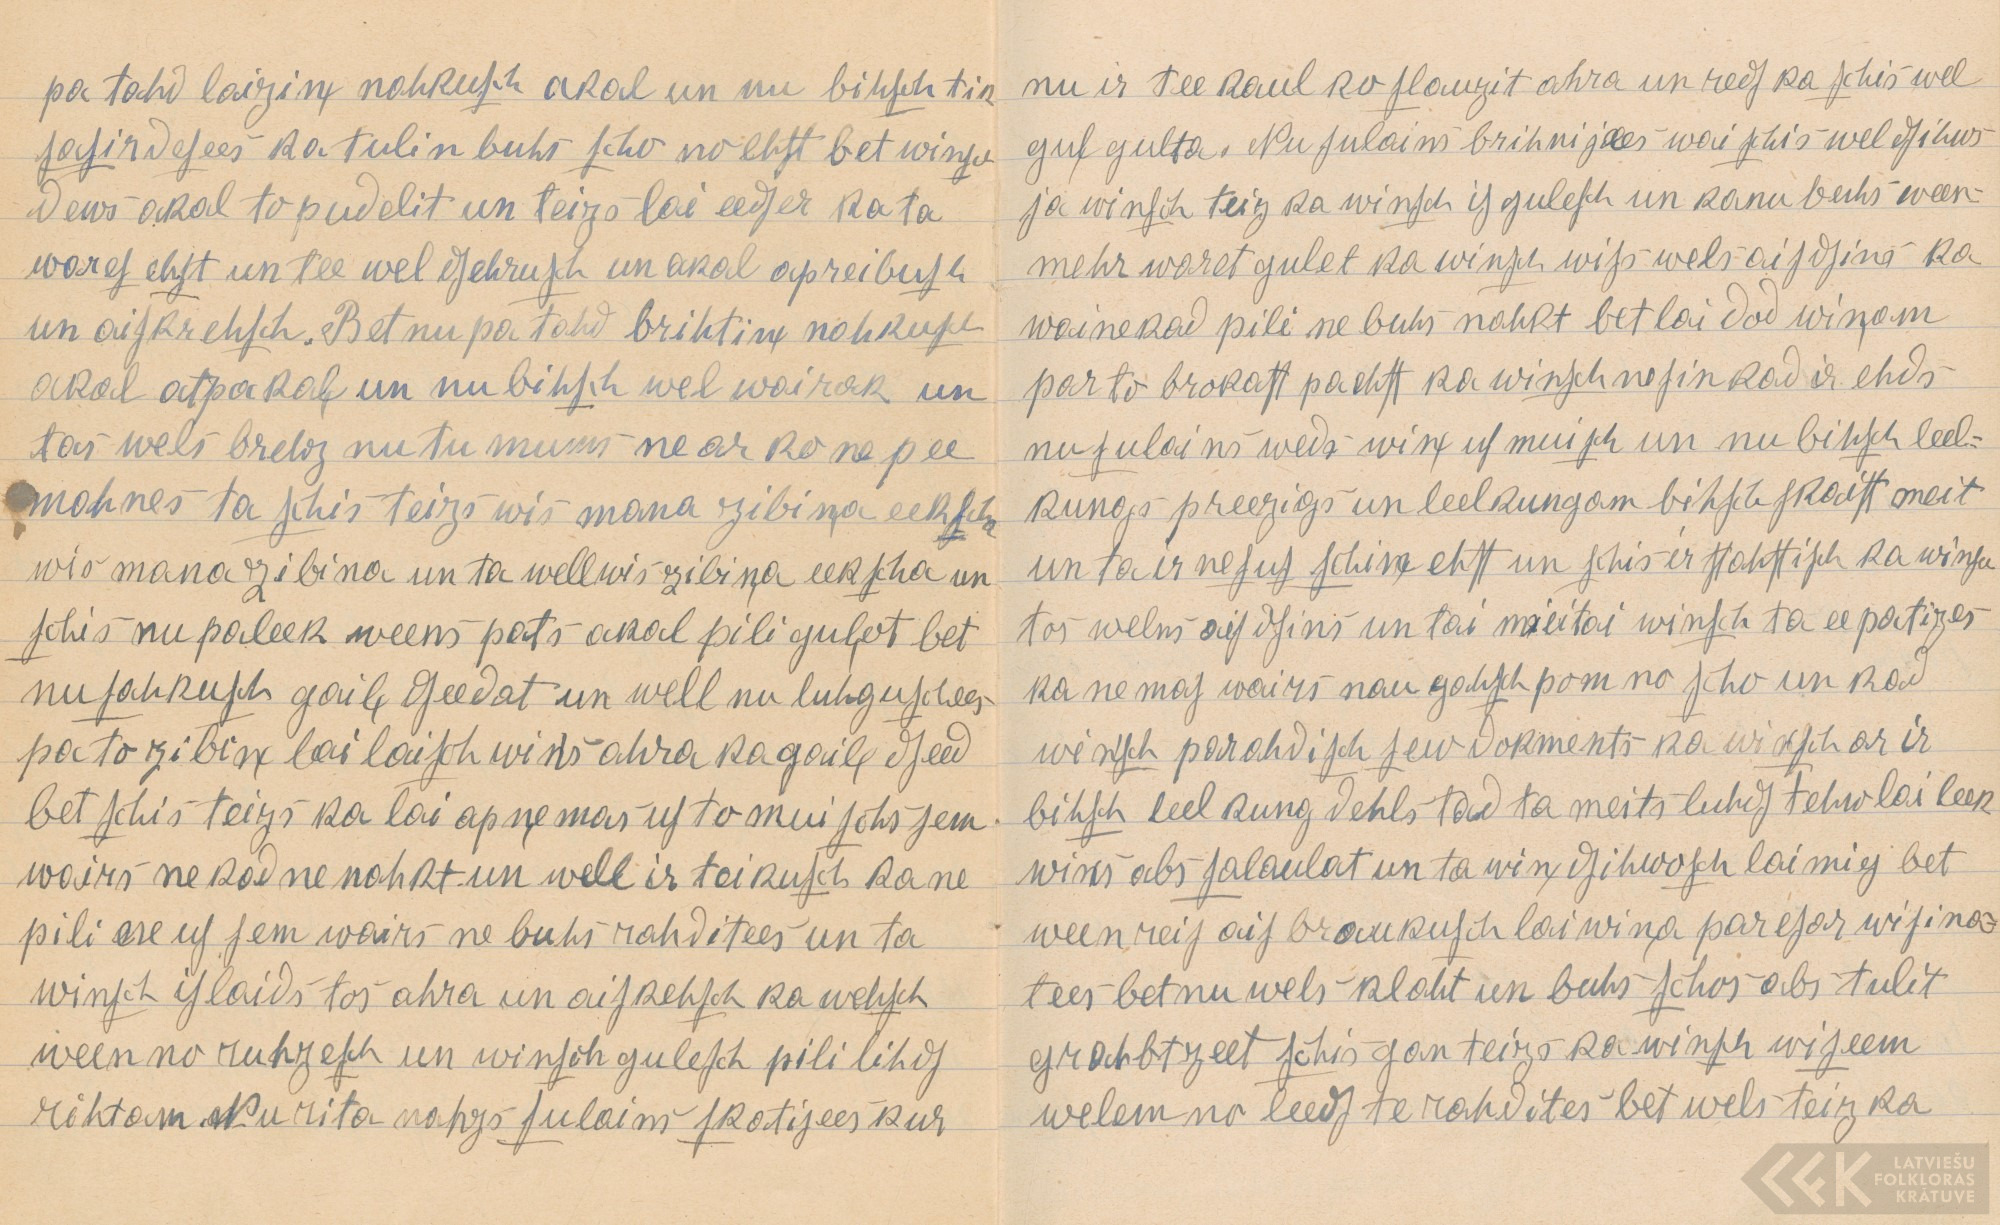 pa tahd laizinx nahkusch akal un nu bihsch tik
sasirdesees ka tulin buhs scho no ehst bet winsch
dews akal to pudelit un teizs lai eedser ka ta
wares ehst un tee wel dsehrusch un akal apreibusch
un aiskrehsch. Bet nu pa tahd brihtinx nahkusch
akal atpakalx un nu bihsch wel wairak un
tas wels brehz nu tu mums ne ar ko ne pee
mahnes ta schis teizs wis mana zibinxa eekscha
wis mana zibina un ta well wis zibinxa eekscha un
schis nu paleek weens pats akal pili gulxot bet
nu sahkusch gailx dseedat un well nu luhguschees
pa to zibinx lai laisch winxs ahra ka gailx dseed
bet schis teizs ka lai apnxemas us to muischs sem
wairs ne kad ne nahkt un well ir teikusch ka ne
pili ne us sem wairs ne buhs rahditees un ta
winsch islaids tos ahra un aiskehsch ka wehsch
ween no ruhzesch un winsch gulesch pili lihds
rihtam. Nu rita nahzs sulains skatisees kur
nu ir tee kaul ko slauzit ahra un reds ka schis wel
gulx gulta. Nu sulains brihnijaes wai schis wel dsihws
ja winsch teiz ka winsch is gulesch un ka nu buhs ween-
mehr waret gulet ka winsch wiss wels aisdsins ka
wai ne kad pili ne buhs nahkt bet lai dod winxam
par to brokast pa ehst ka winsch nesin kad ir ehds
nu sulains weds winx us muisch un nu bihsch leel-
kungs preezigs un leelkungam bihsch skaist meit
un ta ir nesus schinx ehst un schis ir stahstisch ka winsch
tos welns aisdsins un tai meitai winsch ta eepatizes
ka ne mas wairs nau gahsch pom no scho un kad
winsch parahdisch sew dokments ka winsch ar ir
bihsch leel kung dehls tad ta meits luhds tehw lai leek
winxs abs salaulat un ta winx dsihwosch laimig bet
ween reis aisbraukusch lai winxa par esar wisina-
tees bet nu wels klaht un buhs schos abs tulit
grahbt zeet schis gan teizs ka winsch wiseem
welem no leeds te rahdites bet wels teiz ka
LATVIEŠU
FOLKLORAS
KRĀTUVE